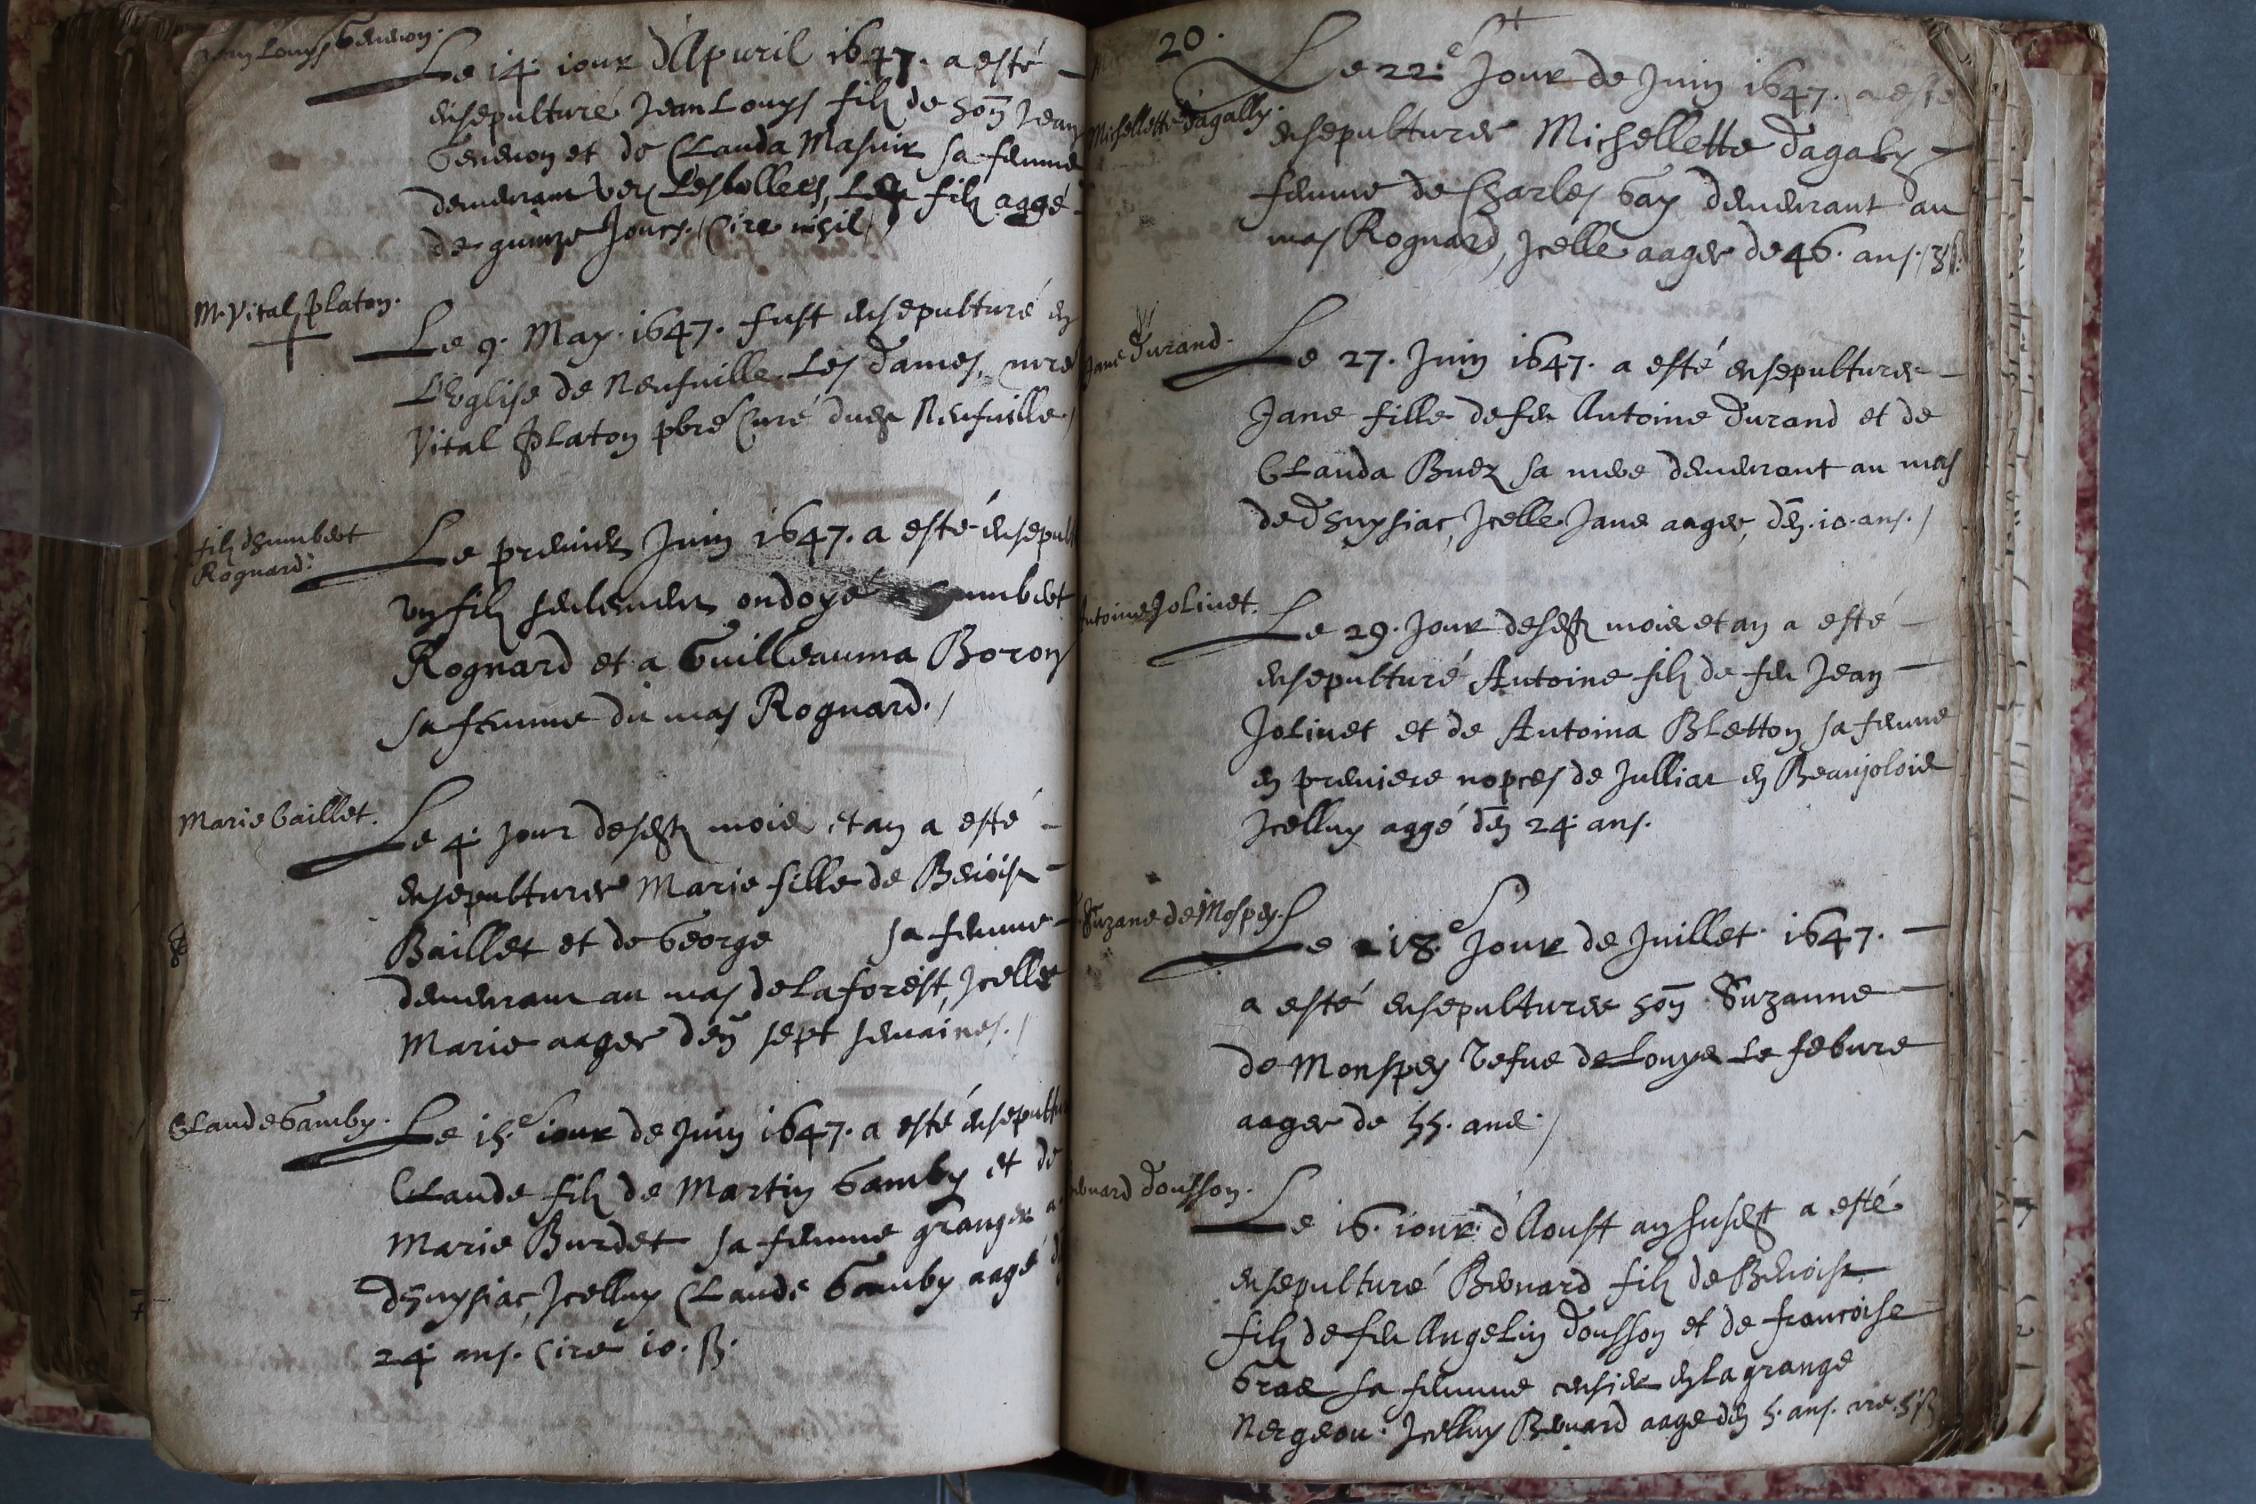 Jean Louys Genevon.
Le 14. jour d'Apuril 1647. a esté
ensepulturé Jean Louys filz de hon Jean
Genevon et de Clauda Masuir sa femme
demeurant vers Lesbollees, led filz aagé
de quinze Jours. / Cire nihil /
Mr Vital Platon.
Le 9. May. 1647. fust ensepulturé en
L'Eglise de Neufuille Les dames, mre
Vital Platon pbre Curé dud Neufuille /
filz d'humbert
Rognard.
Le premier Juin 1647. a esté ensepult
un filz seulement ondoyé a humbert
Rognard et a Guilleauma Boron
sa femme du mas Rognard. /
Marie Baillet.
Le 4. jour desd mois et an a esté
ensepulturee Marie fille de Benoist
Baillet et de George sa femme
demeurant au mas de Laforest, Jcelle
Marie aagee den sept semaines. /
Claude Gamby.
Le 15.e iour de Juin 1647. a esté ensepultu
Claude filz de Martin Gamby et de
Marie Burdet sa femme granger a
d'huysiac, Jcelluy Claude Gamby aagé d
24 ans. Cire 10. ß.
20.
Michellette dagally.
Le 22.e Jour de Juin 1647. a esté
ensepulturee Michellette dagaly
femme de Charles Gay demeurant au
mas Rognard, Jcelle aagee de 46. ans. /
Jane durand.
Le 27. Juin 1647. a esté ensepulturee
Jane fille de feu Antoine durand et de
Clauda Buez sa mere demeurant au mas
de d'huysiac, Jcelle Jane aagee, den. 10. ans. /
Antoine Jolinet.
Le 29. Jour desd mois et an a esté
ensepulturé Antoine filz de feu Jean
Jolinet et de Antoina Bletton sa femme
en premiere nopces de Julliat en Beaujolois
Jcelluy aagé den 24. ans.
Suzane de Mospey.
Le 18.e Jour de Juillet 1647.
a esté ensepulturee hon Suzanne
de Monspey vefue de Louys Le febure
aagee de 55. ans. /
Bernard dousson.
Le 16. iour d'Aoust an susd a esté
ensepulturé Bernard filz de Benoist
filz de feu Angelin dousson et de francoise
Gras sa femme censier en La grange
Nergeon. Jcelluy Bernard aagé den 5. ans.